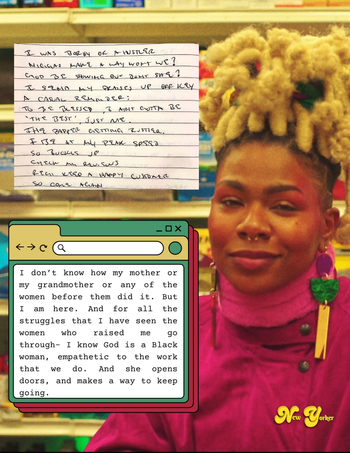 I WAS BORN OF A HUSTLER
NIGGAS MAKE A WAY WON'T WE?
GOD BE SHOWING OUT DON'T SHE?
I SEND MY PRAISES UP OFF KEY
A CAROL REMINDER:
TO BE BLESSED, I AINT GOTTA BE
'THE BEST', JUST ME.
THE PAPER GETTING
I BE AT MY PEAK SPEED
SO BUCKLE UP
CHECK MY REVIEWS
KEEP A HAPPY CUSTOMER
SO COME AGAIN
I don't know how my mother or
my grandmother or any of the
women before them did it. But
I am here. And for all the
struggles that I have seen the
women who raised me go
through- I know God is a Black
woman, empathetic to the work
that we do. And she opens
doors, and makes a way to keep
going.
New Yorker